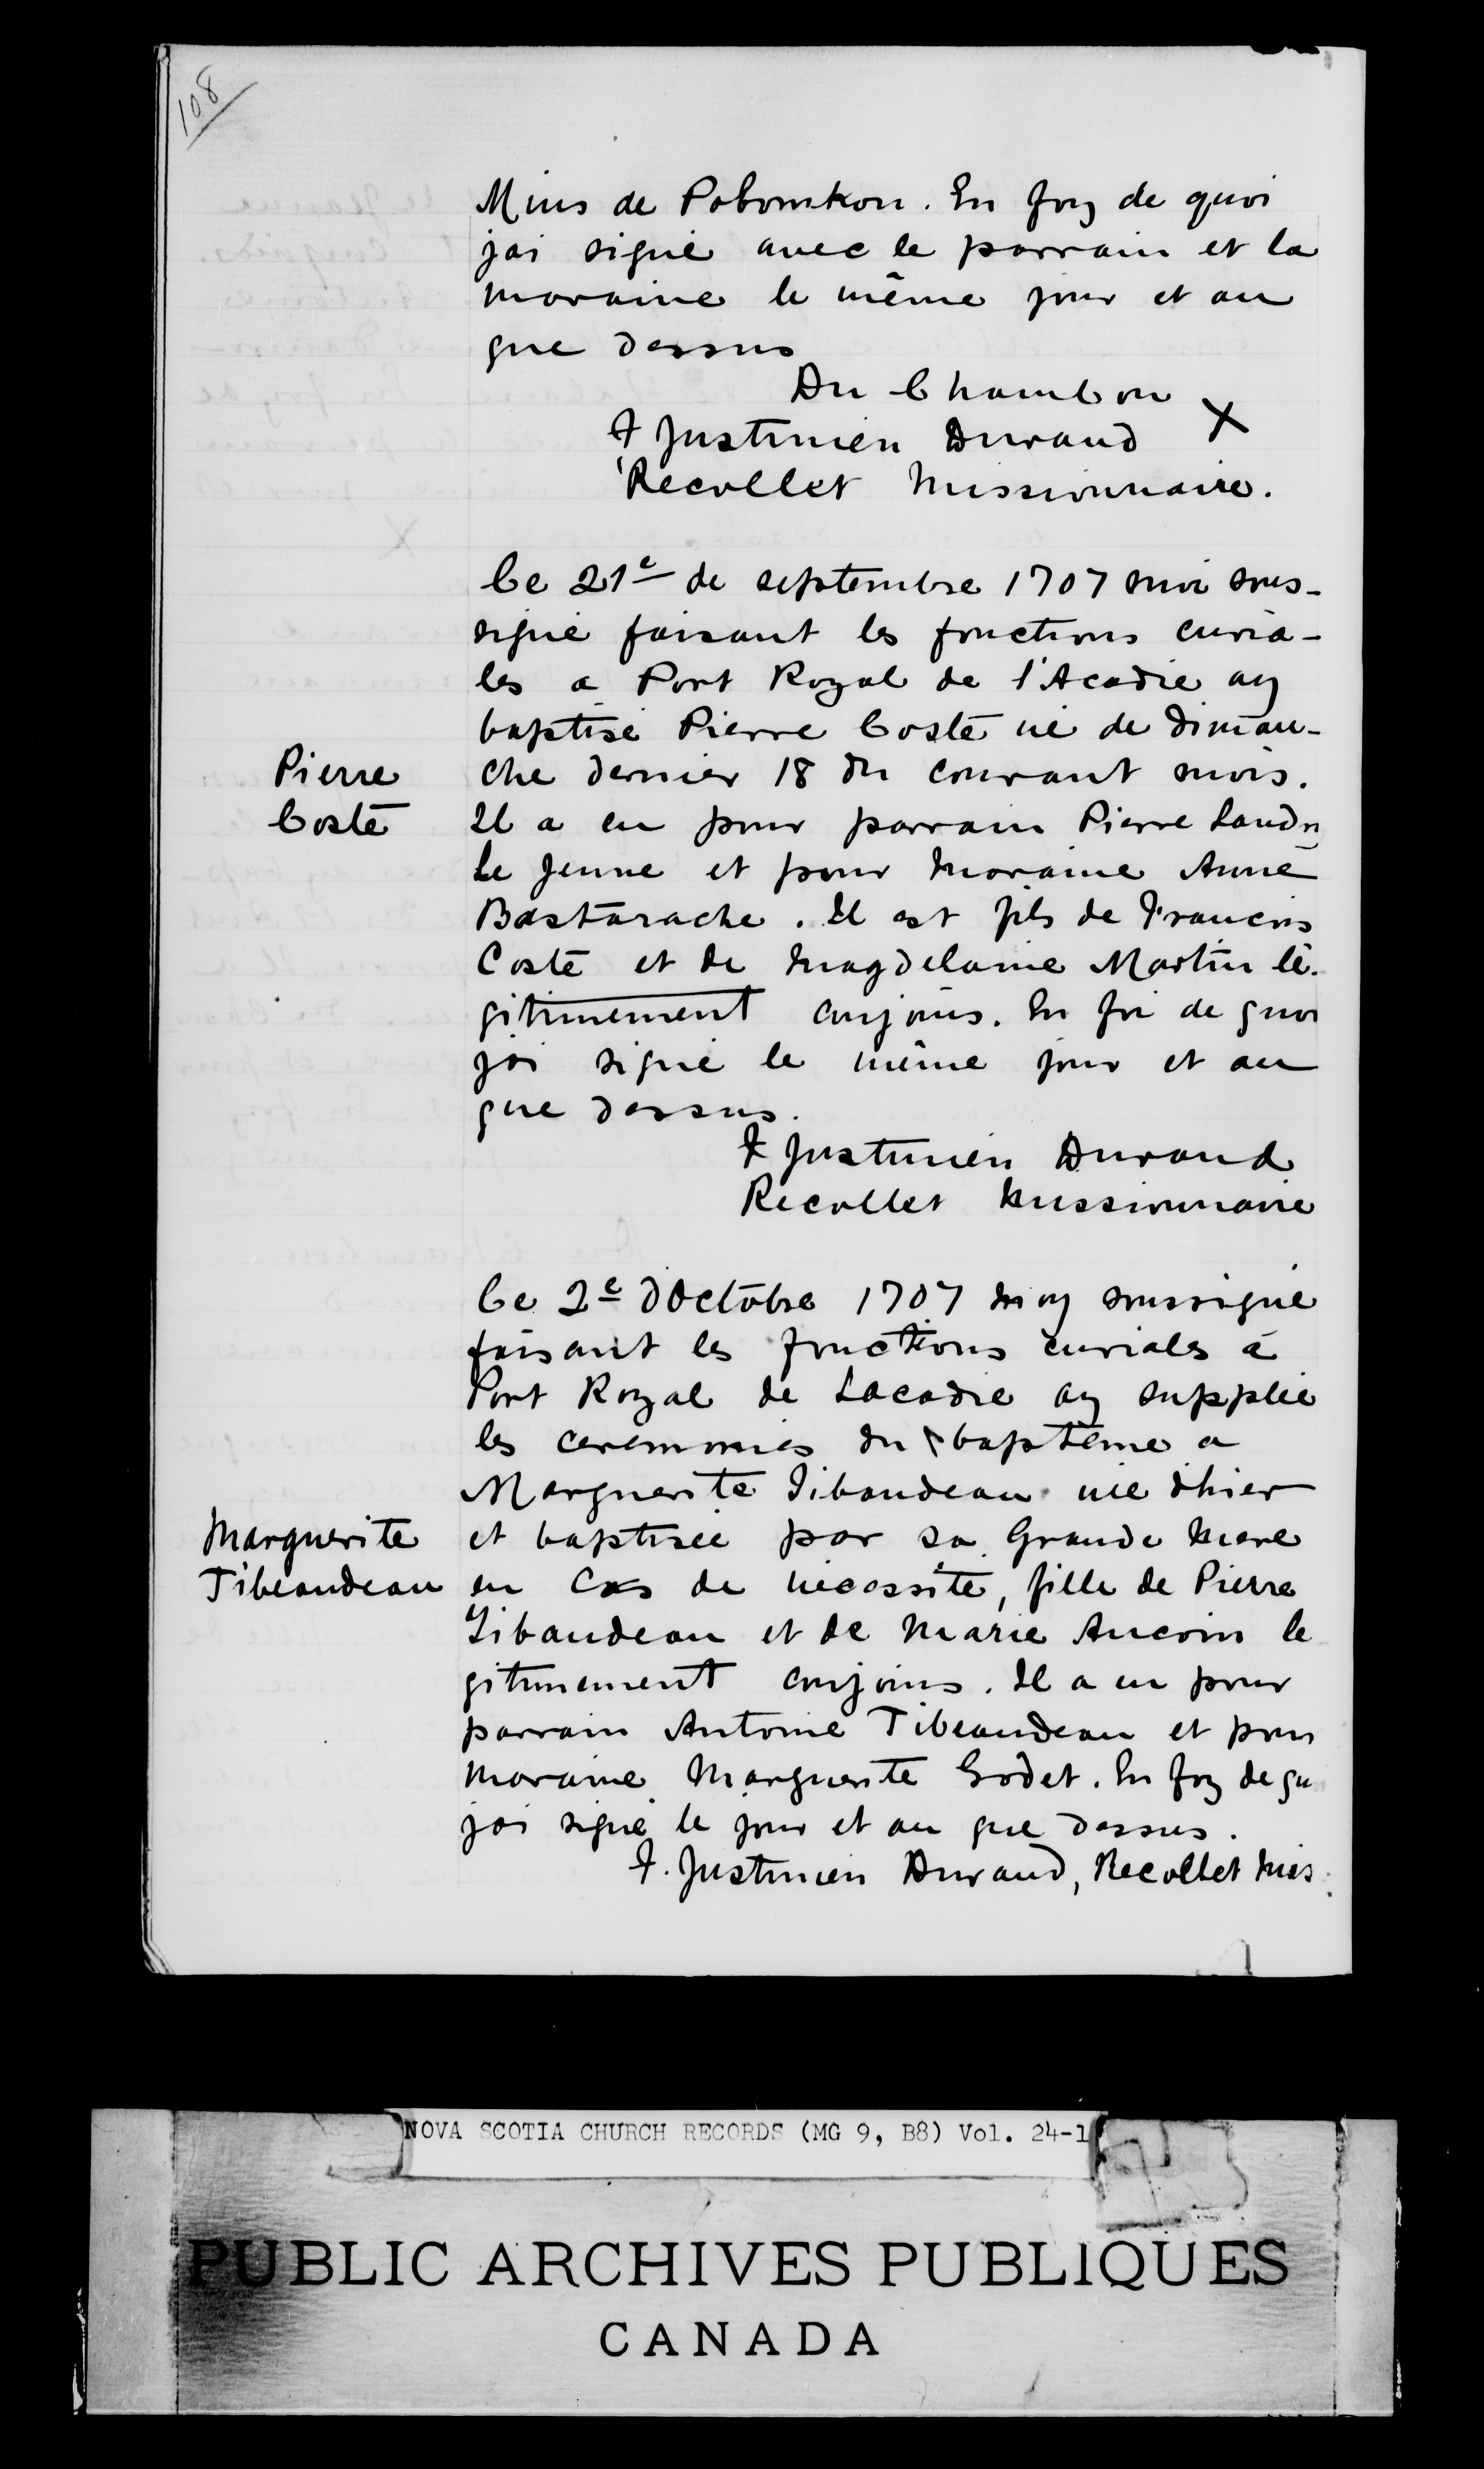 108
Mius de Pobomkon. En foy de quoi
jai signé avec le parrain et la
maraine le même jour et an
que dessus
Du Chambon
F Justinien Durand X
Recollet Missionnaire.
Ce 21e de septembre 1707 moi sous-
signé faisant les fonctions curia-
les a Port Royal de l'Acadie ay
baptisé Pierre Coste né de diman-
Pierre
Coste
che dernier 18 du courant mois.
Il a eu pour parrain Pierre Landry
Le Jeune et pour Maraine Anne
Bastarache. Il est fils de Francois
Coste et de Magdelaine Martin lé-
gitimement conjoins. En foi de quoi
jai signé le même jour et an
que dessus.
F Justinien Durand
Recollet Missionnaire
Ce 2e dOctobre 1707 moy soussigné
faisant les fonctions curiales à
Port Royal de Lacadie ay supplié
les ceremonies du baptême a
Marguerite Tibaudeau née dhier
Marguerite
Tibeaudeau
et baptisée par sa Grande Mere
en Cas de nécessité, fille de Pierre
Tibaudeau et de Marie Aucoin le
gitimement conjoins. Il a eu pour
parrain Antoine Tibeaudeau et pour
Maraine Marguerite Godet. En foy de qu
jai signé le jour et an que dessus.
F. Justinien Durand, Recollet Mis.
NOVA SCOTIA CHURCH RECORDS (MG 9, B8) Vol. 24-1
PUBLIC ARCHIVES PUBLIQUES
CANADA